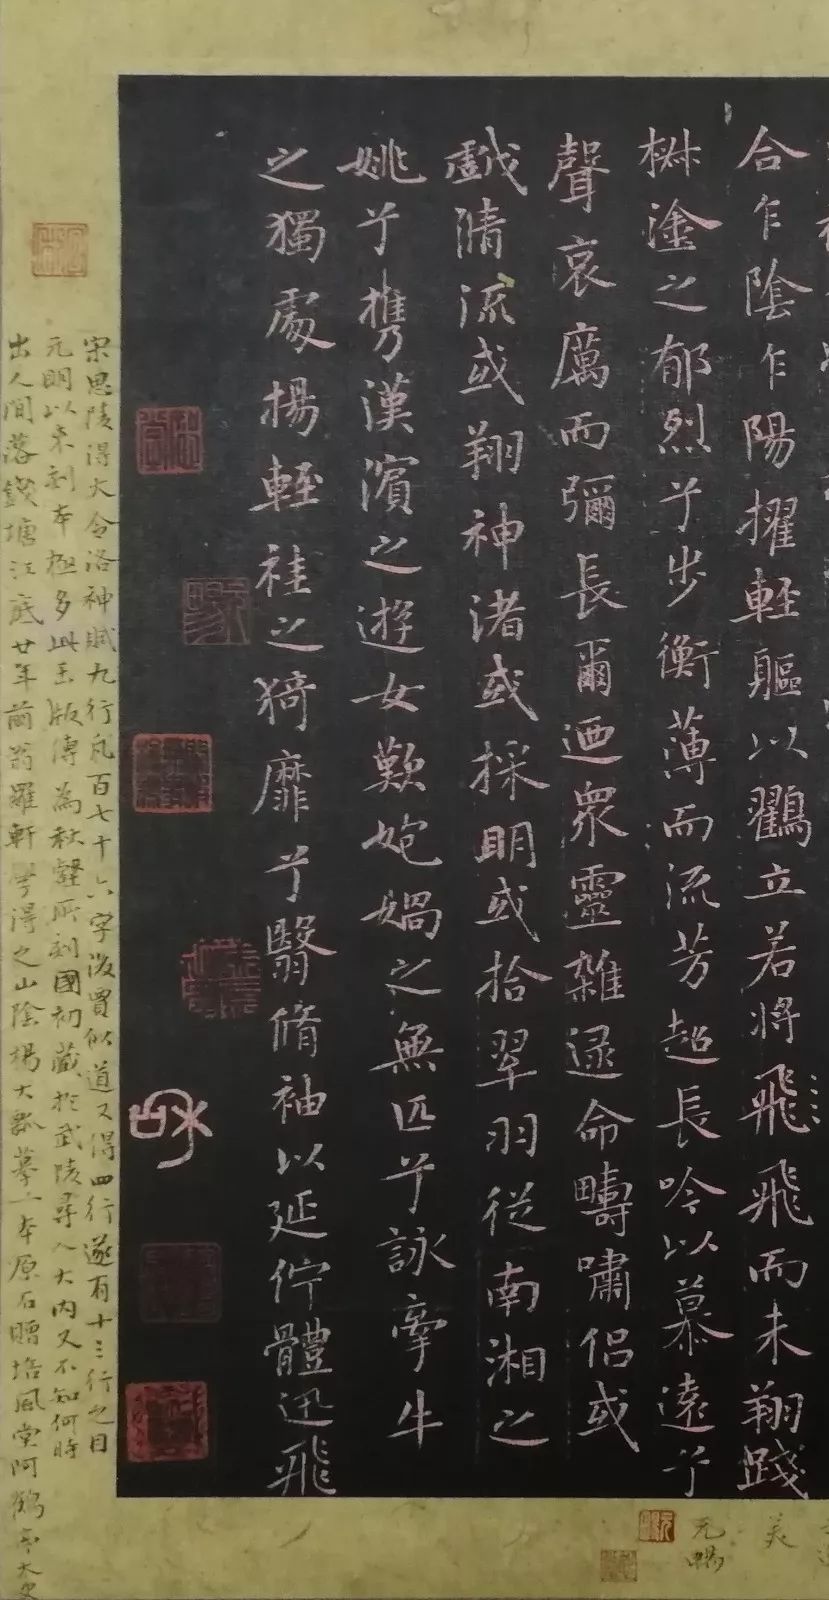 合乍陰乍陽擢輕軀以鸖立若將飛飛而未翔踐
椒塗之郁烈兮步衡薄而流芳超長吟以慕遠兮
聲哀厲而彌長爾迺衆靈雜遝命疇嘯侣或
戲清流或翔神渚或採明或拾翠羽從南湘之
姚兮攜漢濱之遊女歎妑媧之無匹兮詠牽牛
之獨處揚輕袿之猗靡兮翳脩袖以延佇體迅飛
宋思陵得大令洛神賦九行凡百七十六字後賈似道又得四行遂有十三行之目
元明以來刻本極多此玉版傳為秋壑所刻國初藏於武陵尋入大内又不知何時
出人間落錢塘江底廿年前翁羅軒學得之山陰楊大瓢摹一本原石贈
元暢
美